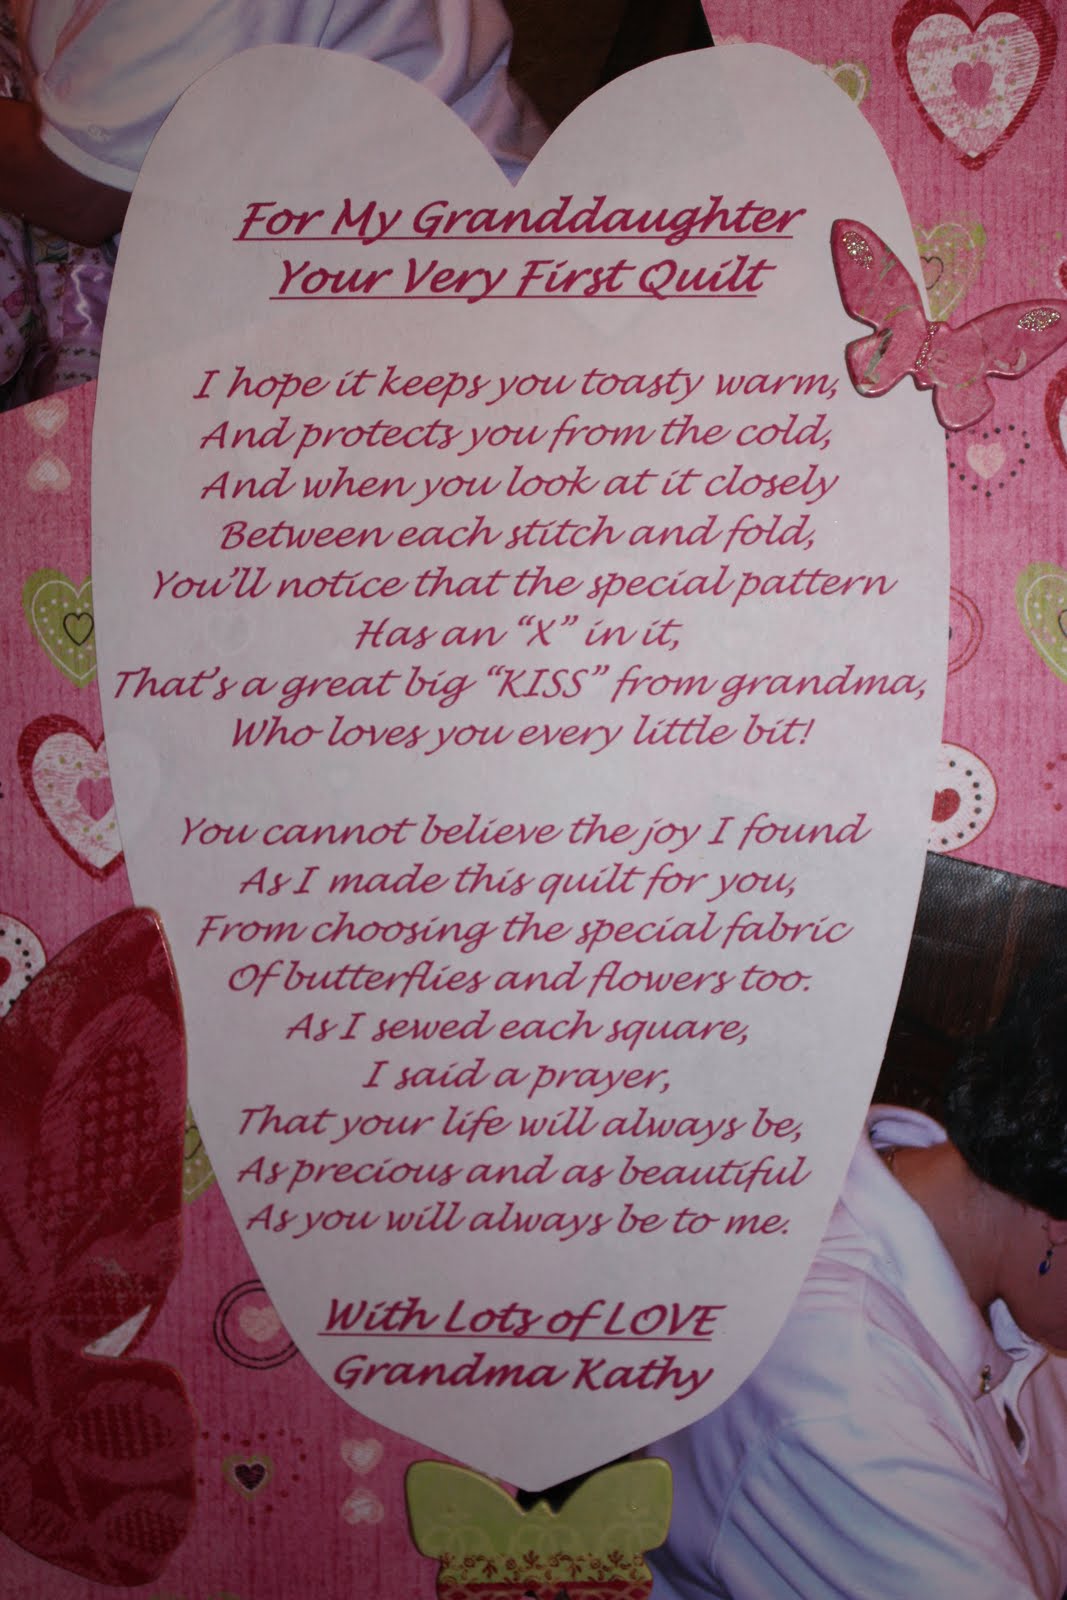 For My Granddaughter
Your Very First Quilt
I hope it keeps you toasty warm,
And protects you from the cold,
And when you look at it closely
Between each stitch and fold,
You'll notice that the special pattern
Has an “X” in it,
That's a great big “KISS” from grandma,
Who loves you every little bit!
You cannot believe the joy I found
As I made this quilt for you,
From choosing the special fabric
Of butterflies and flowers too.
As I sewed each square,
I said a prayer,
That your life will always be,
As precious and as beautiful
As you will always be to me.
With Lots of LOVE
Grandma Kathy